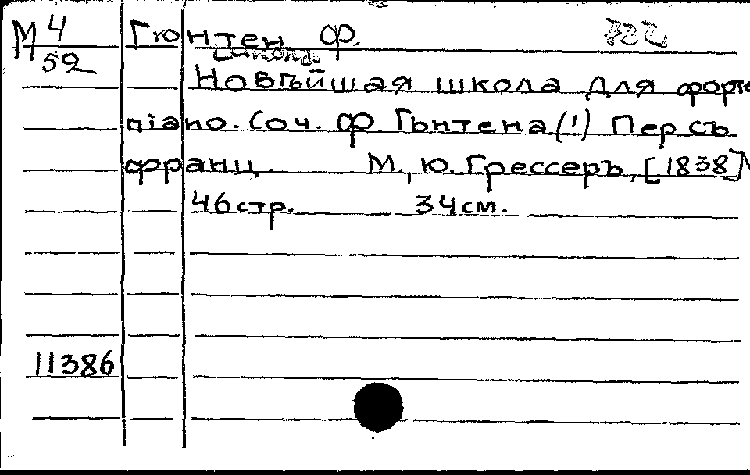 М 4 Гюнтен Ф.
59
Новѣйшая школа для форте
піано. Соч. Ф Гюнтена (!) Пер съ
франц. М., Ю. Грессеръ, [1838]
46 стр. 34 см.
11386